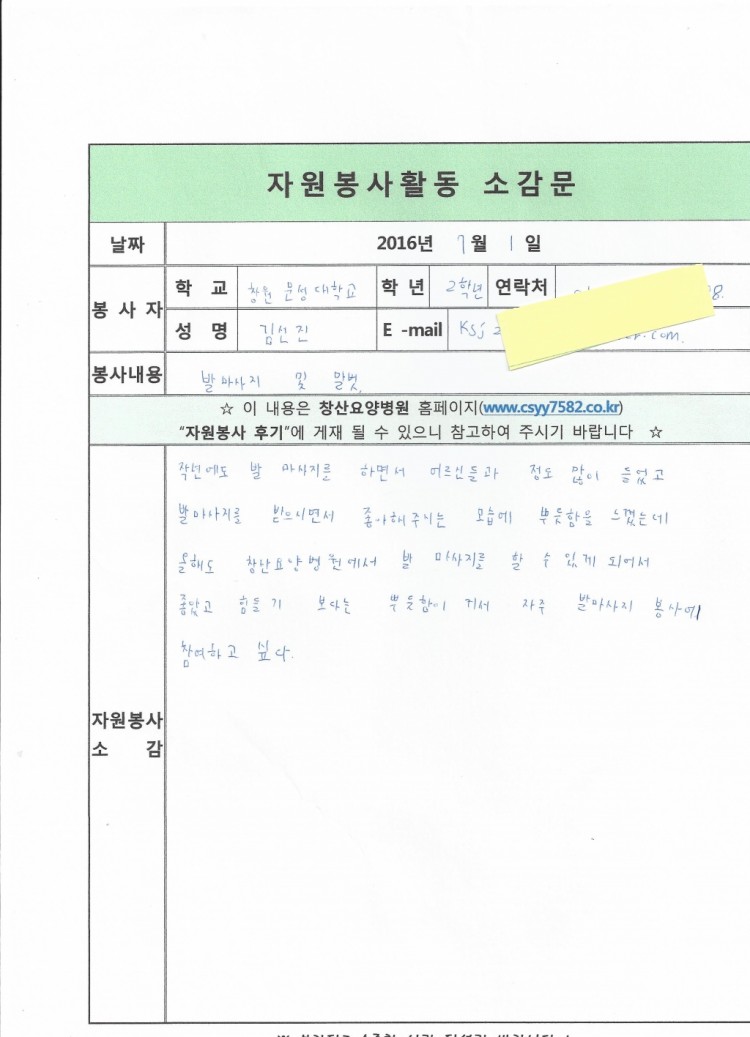 자원봉사활동 소감문
날짜 2016년 7월 1일
봉사자 학교 창원 문성대학교 학년 2학년 연락처 8.
성명 김선진 E-mail Ksj com.
봉사내용 발마사지 및 말벗.
☆ 이 내용은 창산요양병원 홈페이지(www.csyy7582.co.kr)
"자원봉사 후기"에 게재 될 수 있으니 참고하여 주시기 바랍니다 ☆
작년에도 발 마사지를 하면서 어르신들과 정도 많이 들었고
발마사지를 받으시면서 좋아해주시는 모습에 뿌듯함을 느꼈는데
올해도 창산요양병원에서 발 마사지를 할 수 있게 되어서
좋았고 힘들기 보다는 뿌듯함이 커서 자주 발마사지 봉사에
참여하고 싶다.
자원봉사
소 감